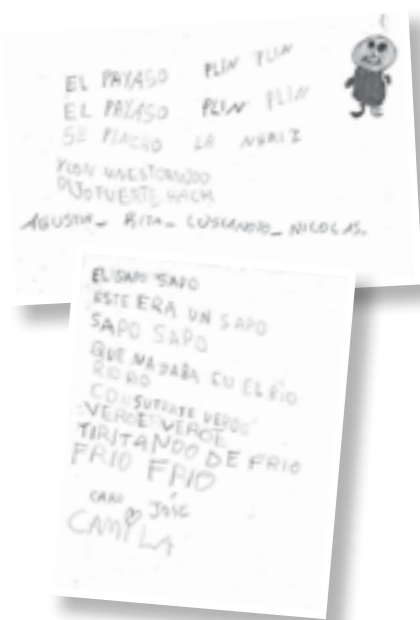 EL PAYASO PLIN PLIN
EL PAYASO PLIN PLIN
SE PINCHO LA NARIZ
Y CON UN ESTORNUDO
DIJO FUERTE HACH
AGUSTIN_ RITA_ _ NICOLAS.
EL SAPO SAPO
ESTE ERA UN SAPO
SAPO SAPO
QUE NADABA EN EL RIO
RIO RIO
VERDE VERDE
TIRITANDO DE FRIO
FRIO FRIO
CARO
CAMILA